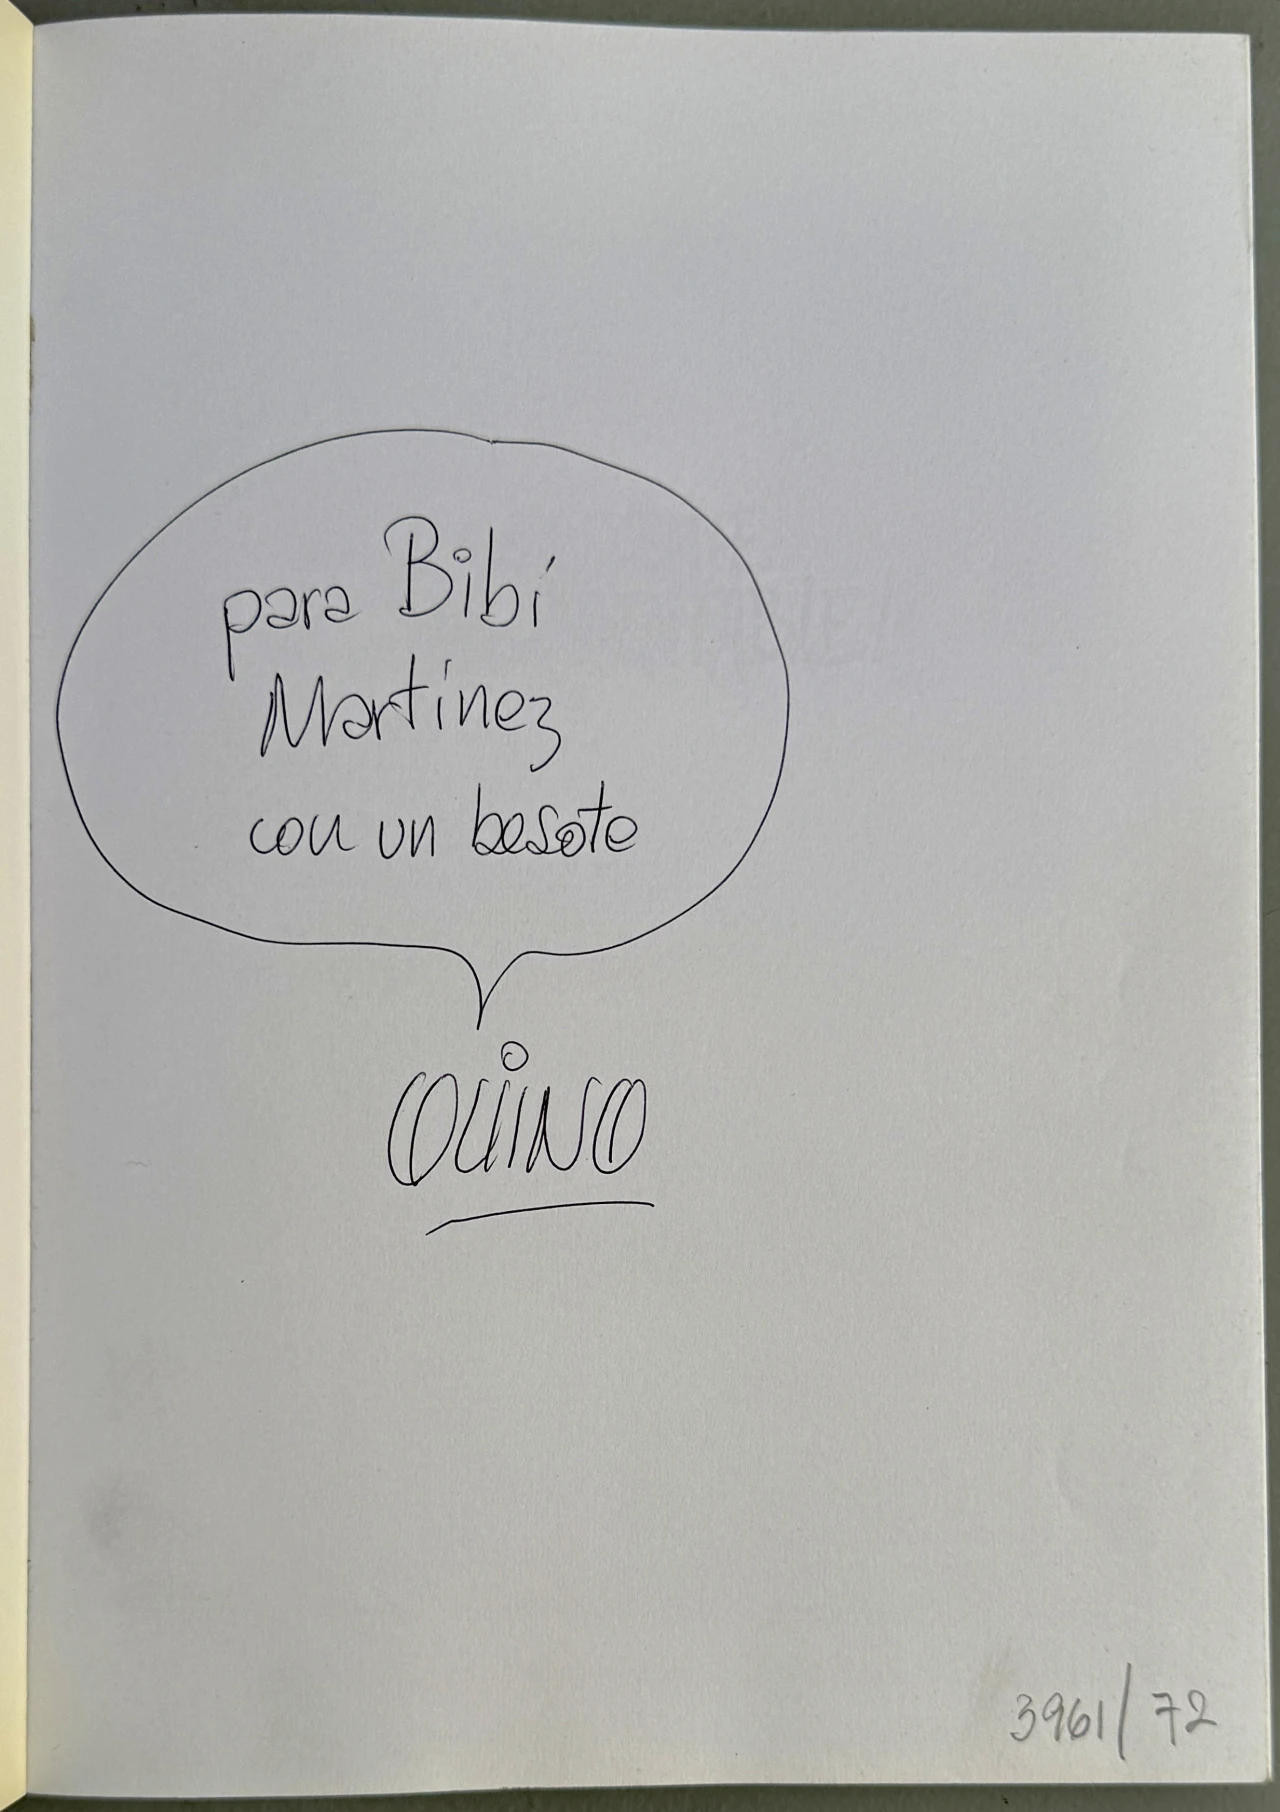 para Bibí
Martínez
con un besote
QUINO
3961/72